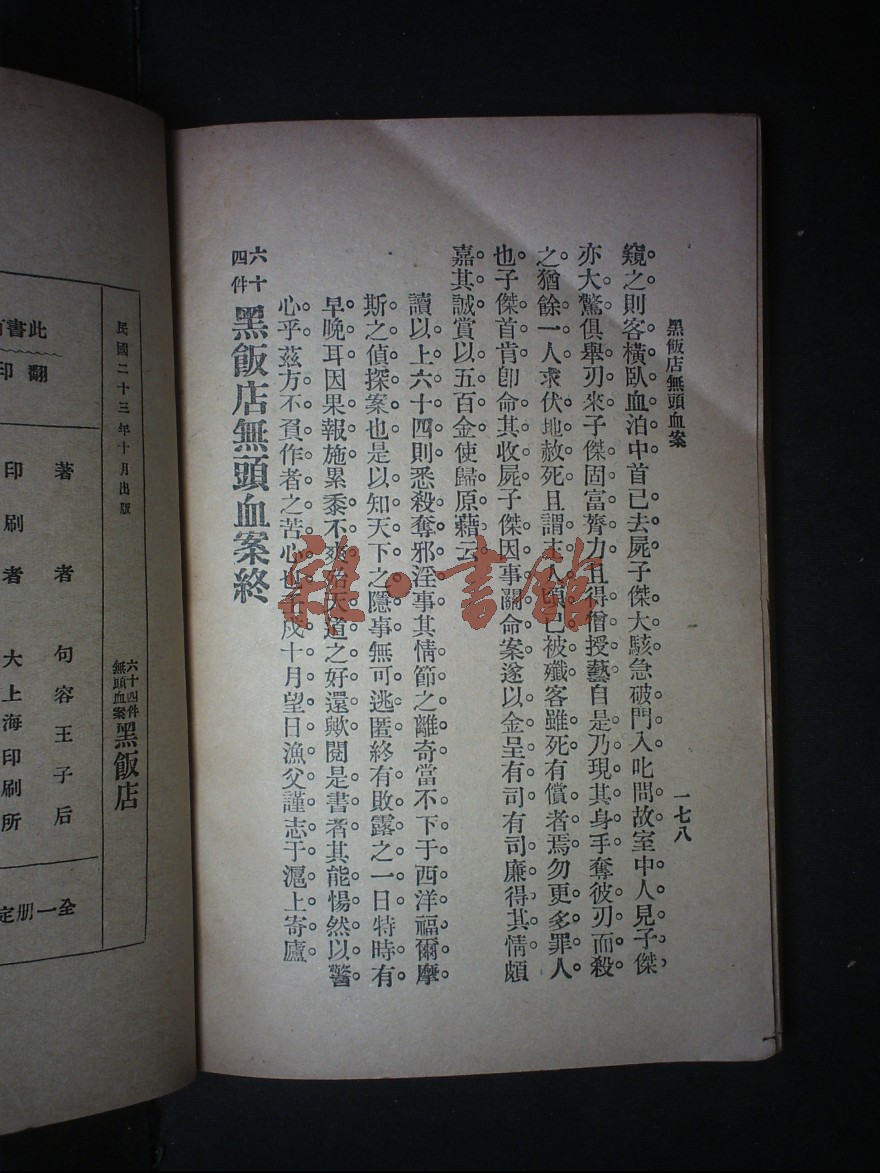 黑飯店無頭血案
一七八
窺之則客橫臥血泊中首已去屍子傑大駭急破門入叱問故室中人見子傑
亦大驚俱舉刃來子傑固富膂力且得僧授藝自是乃現其身手奪彼刃而殺
之猶餘一人求伏地赦死且謂主人頃已被殲客雖死有償者焉勿更多罪人
也子傑首肯卽命其收屍子傑因事關命案遂以金呈有司有司廉得其情頗
嘉其誠賞以五百金使歸原藉云
讀以上六十四則悉殺奪邪淫事其情節之離奇當不下于西洋福爾摩
斯之偵探案也是以知天下之隱事無可逃匿終有敗露之一日特時有
早晚耳因果報施累黍不爽殆天道之好還歟閱是書者其能惕然以警
心乎茲方不負作者之苦心也壬戌十月望日漁父謹志于滬上寄廬
六十四件 黑飯店無頭血案終
雜·書館
民國二十三年十月出版
六十四件無頭血案 黑飯店
此書
翻印
著者 句容王子后
印刷者 大上海印刷所
全一册定